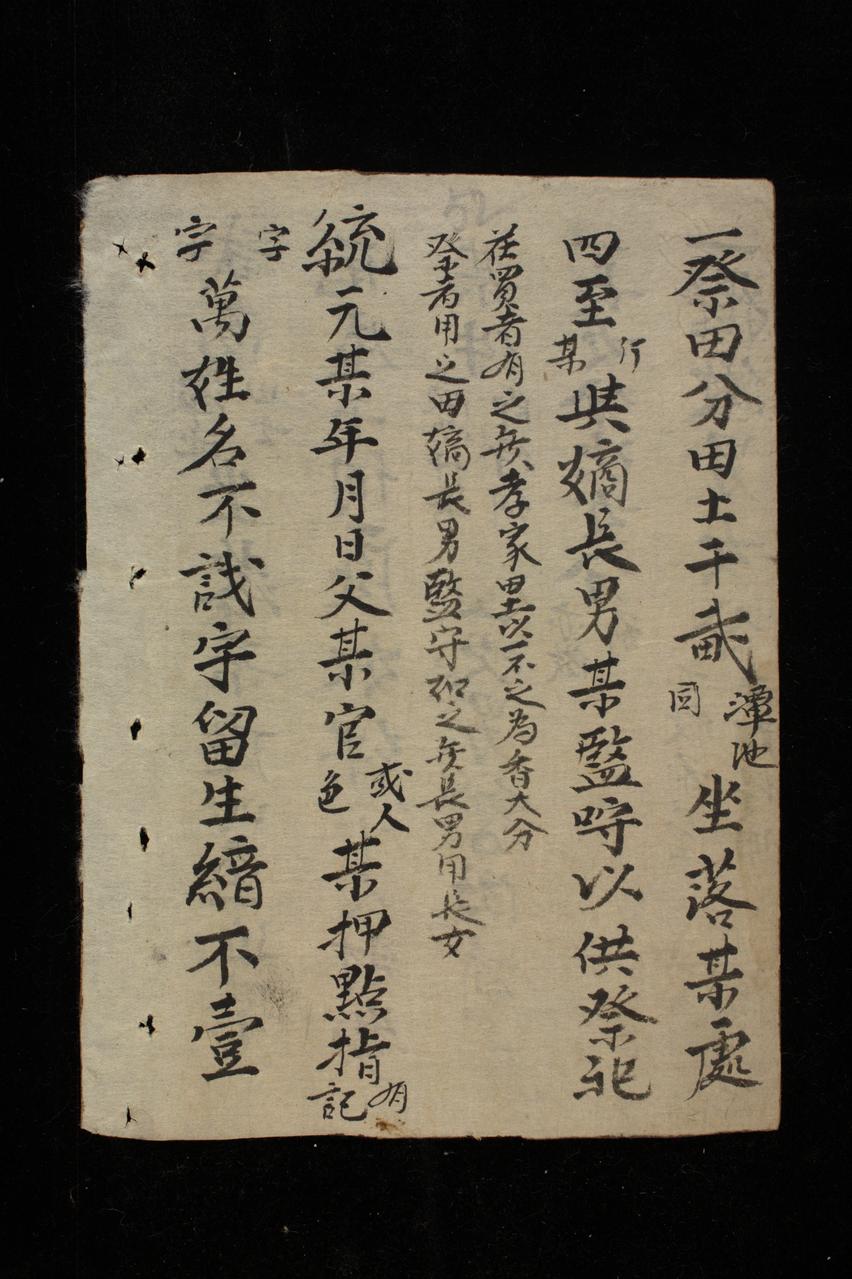 一祭田分田土干畝潭池囩坐落某處
四至行某與嫡長男某監守以供祭祀
在買者有之無孝家里以不之為香火分
祭者用之田嫡長男監守如之無長男用長女
統元某年月日父某官或人色某押點指有記
字字
萬姓名不識字留生繒不壹